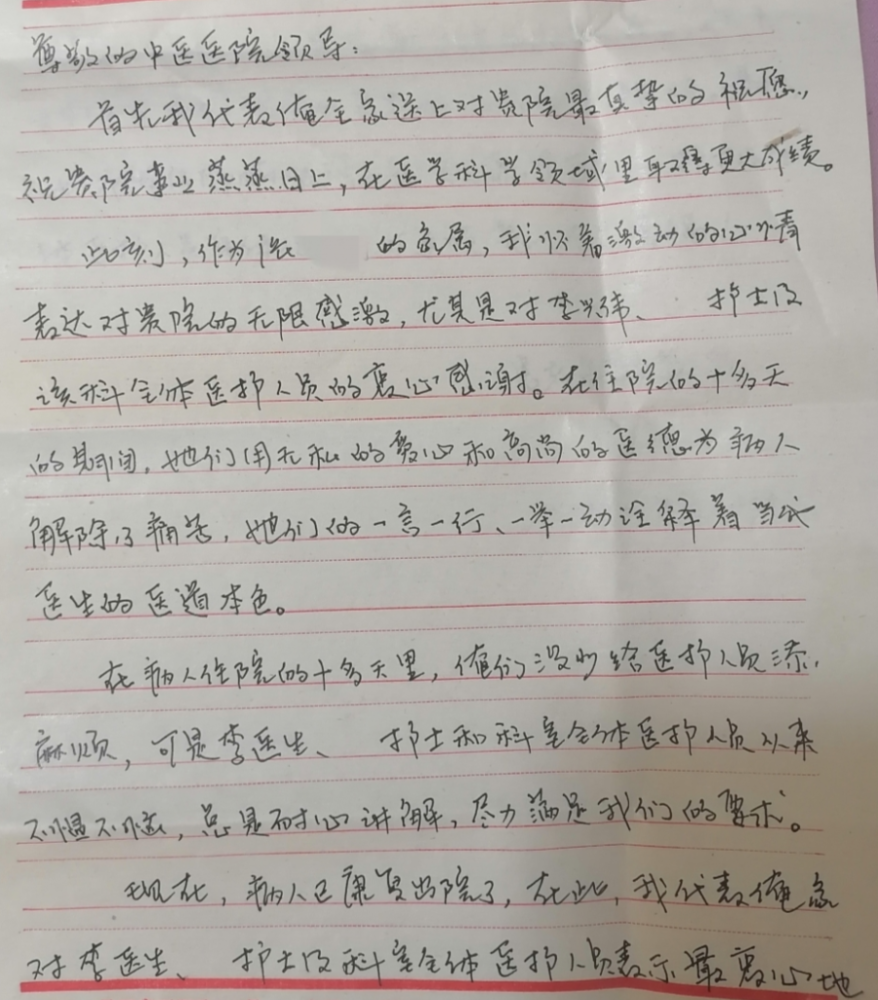 尊敬的中医医院领导:
首先我代表俺全家送上对贵院最真挚的祝愿,
祝贵院事业蒸蒸日上,在医学科学领域里取得更大成绩。
此刻,作为 的家属,我怀着激动的心情
表达对贵院的无限感激,尤其是对李兴纬、 护士及
该科全体医护人员的衷心感谢。在住院的十多天
的期间,她们用无私的爱心和高尚的医德为病人
解除了病苦,她们的一言一行、一举一动诠释着当代
医生的医道本色。
在病人住院的十多天里,俺们没少给医护人员添
麻烦,可是李医生、 护士和科室全体医护人员从来
不愠不恼,总是耐心讲解,尽力满足我们的要求。
现在,病人已康复出院了,在此,我代表俺家
对李医生、 护士及科室全体医护人员表示最衷心地